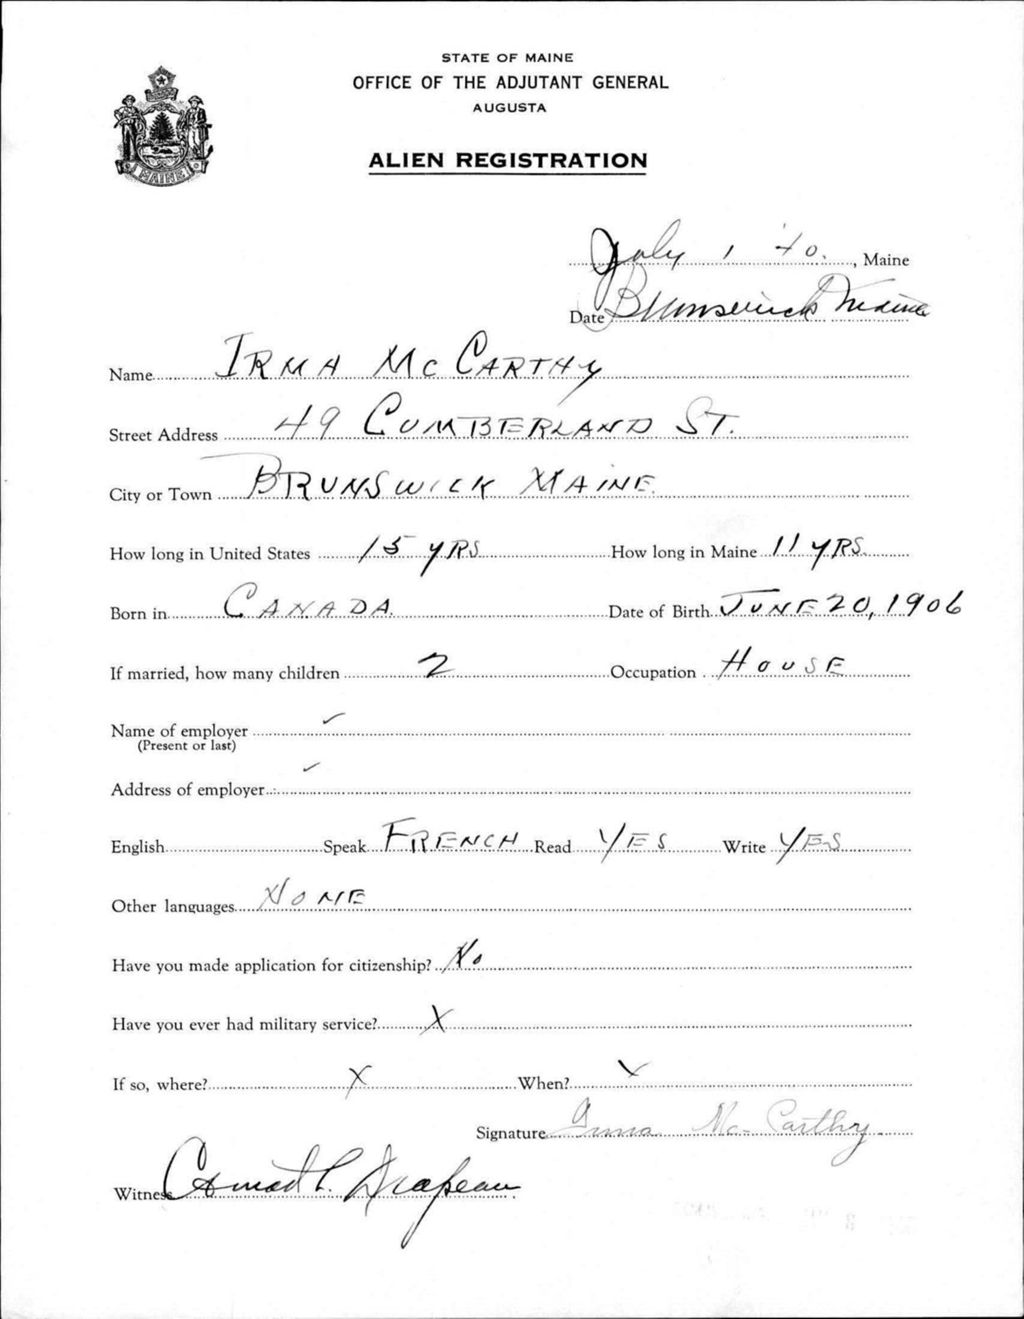 STATE OF MAINE
OFFICE OF THE ADJUTANT GENERAL
AUGUSTA
ALIEN REGISTRATION
MAINE
July 1 '40, Maine
Date Brunswick Maine
Name IRMA McCARTHY
Street Address 49 CUMBERLAND ST.
City or Town BRUNSWICK MAINE
How long in United States 15 YRS How long in Maine 11 YRS
Born in CANADA. Date of Birth JUNE 20, 1906
If married, how many children 2 Occupation HOUSE
Name of employer ✓
(Present or last)
Address of employer ✓
English Speak FRENCH Read YES Write YES
Other languages NONE
Have you made application for citizenship? No
Have you ever had military service? X
If so, where? X When? X
Signature Irma McCarthy
Witness L. Drapeau